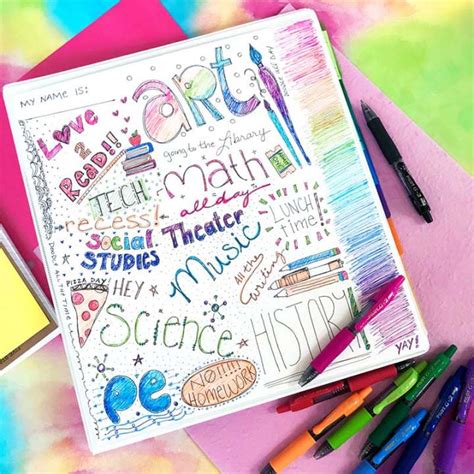 MY NAME IS:
Love
2
Read!!
art
going to the Library
TECH
Math
all day
recess!
Social
STUDIES
Theater
LUNCH
time!
Music
PIZZA DAY
HEY
All the
writing
Science
HISTORY
pe
NOMM
HOMEWORK
YAY!